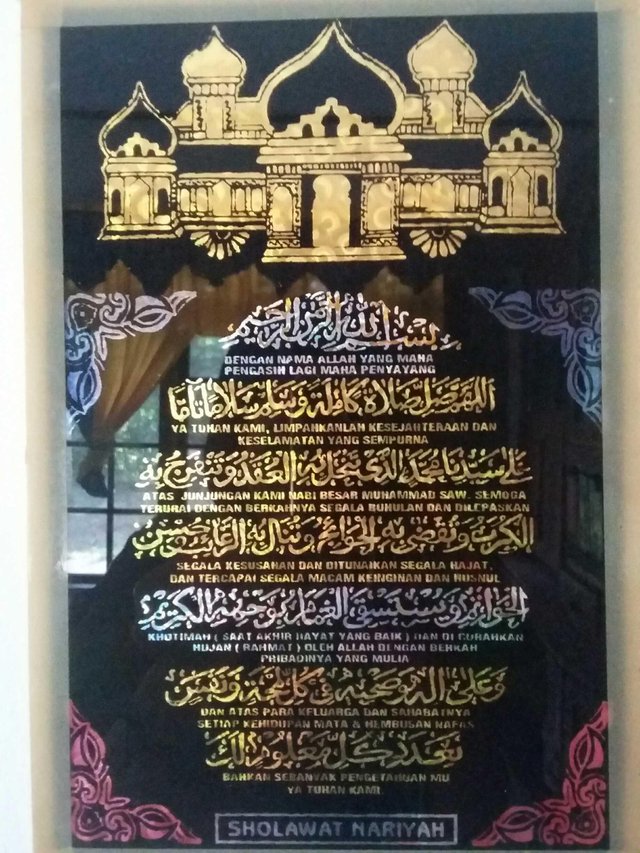 بسم الله الرحمن الرحيم
DENGAN NAMA ALLAH YANG MAHA
PENGASIH LAGI MAHA PENYAYANG
اللهم صل صلاة كاملة وسلم سلاما تاما
YA TUHAN KAMI, LIMPAHKANLAH KESEJAHTERAAN DAN
KESELAMATAN YANG SEMPURNA
على سيدنا محمد الذي تنحل به العقد وتنفرج به
ATAS JUNJUNGAN KAMI NABI BESAR MUHAMMAD SAW. SEMOGA
TERURAI DENGAN BERKAHNYA SEGALA BUHULAN DAN DILEPASKAN
الكرب وتقضى به الحوائج وتنال به الرغائب وحسن
SEGALA KESUSAHAN DAN DITUNAIKAN SEGALA HAJAT,
DAN TERCAPAI SEGALA MACAM KEINGINAN DAN HUSNUL
الخواتم ويستسقى الغمام بوجهه الكريم
KHOTIMAH ( SAAT AKHIR HAYAT YANG BAIK ) DAN DI CURAHKAN
HUJAN ( RAHMAT ) OLEH ALLAH DI NGAN BERKAH
PRIBADINYA YANG MULIA
وعلى اله وصحبه في كل لمحة ونفس
DAN ATAS PARA KELUARGA DAN SAHABATNYA
SETIAP KEHIDUPAN MATA & HEMBUSAN NAFAS
بعدد كل معلوم لك
BAHKAN SEBANYAK PENGETAHUAN MU
YA TUHAN KAMI.
SHOLAWAT NARIYAH